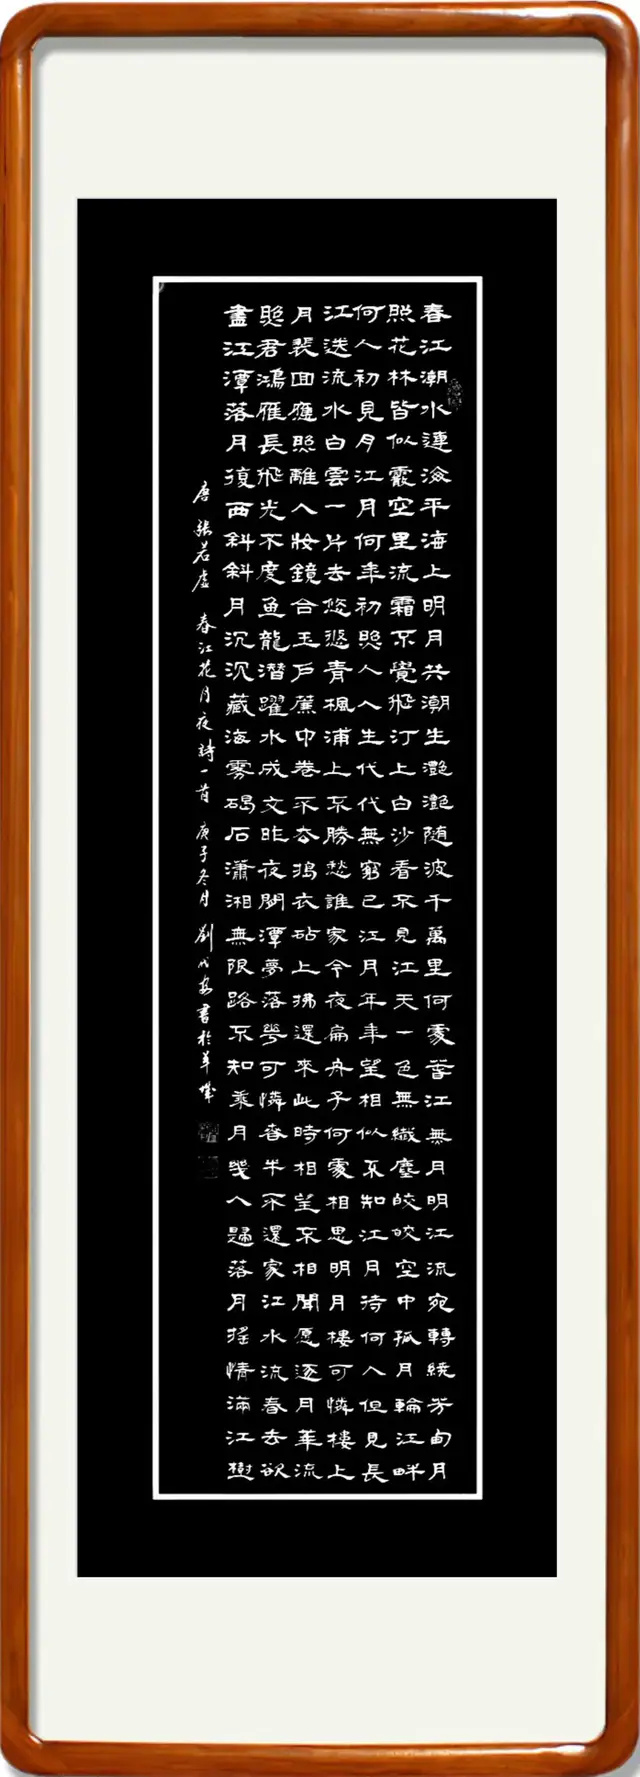 春江潮水連海平海上明月共潮生灔灔随波千萬里何處春江無月明江流宛轉繞芳甸月
照花林皆似霰空里流霜不覺飛汀上白沙看不見江天一色無纖塵皎皎空中孤月輪江畔
何人初見月江月何年初照人人生代代無窮已江月年年望相似不知江月待何人但見長
江送流水白雲一片去悠悠青楓浦上不勝愁誰家今夜扁舟子何處相思明月樓可憐樓上
月裴回應照離人妝鏡合玉户簾中卷不去搗衣砧上拂還來此時相望不相聞愿逐月華流
照君鴻雁長飛光不度魚龍潛躍水成文昨夜閒潭夢落花可憐春半不還家江水流春去欲
盡江潭落月復西斜斜月沉沉藏海霧碣石瀟湘無限路不知乘月幾人歸落月搖情滿江樹
唐 張若虛 春江花月夜詩一首 庚子冬月 劉成安書於羊城